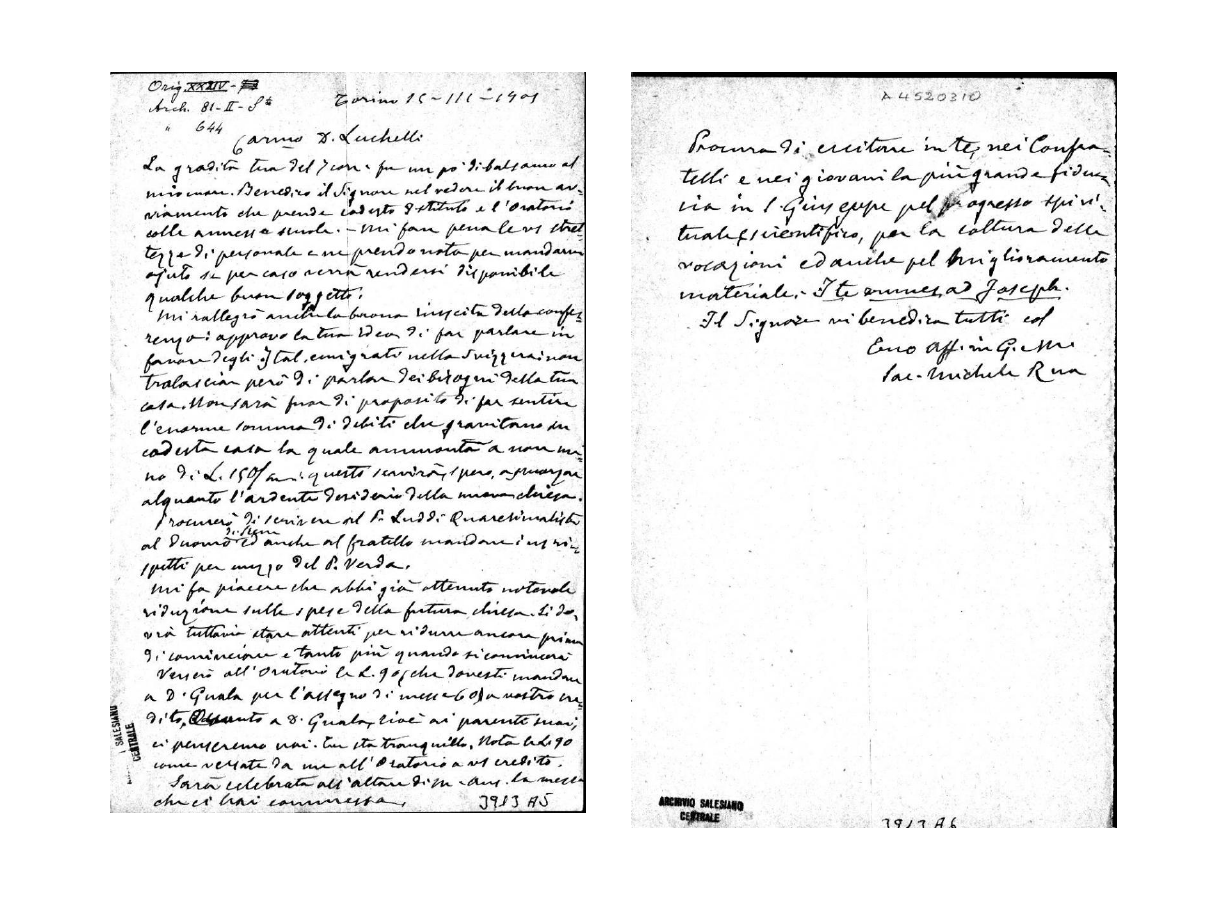 Orig. XXXIV -
Arch. 81-II-S.
" 644
Torino 15-III-1901
Carmo D. Luchelli
La gradita tua del 7 corr. fu un po' di balsamo al
mio cuore. Benedico il Signore nel vedere il buon av-
viamento che prende codesto Istituto e l'Oratorio
colle annesse scuole. - Mi fan pena le vs stret-
tezze di personale e ne prendo nota per mandarvi
ajuto se per caso verrà rendersi disponibile
qualche buon soggetto.
Mi rallegro anche la buona riuscita della confe-
renza: approvo la tua idea di far parlare in
favore degli Ital. emigrati nella Svizzera: non
tralasciar però di parlar dei bisogni della tua
casa. Non sarà fuor di proposito di far sentire
l'enorme somma di debiti che gravitano su
codesta casa la quale ammonta a non me-
no di L. 150/m: questo servirà, spero, a smorzare
alquanto l'ardente desiderio della nuova chiesa.
Procurerò di scrivere al P. Luddi Quaresimalista
al Duomo ed anche al fratello mandare i miei ri-
spetti per mezzo del P. Verda.
Mi fa piacere che abbi già ottenuto notevole
riduzione sulle spese della futura chiesa. Si do-
vrà tuttavia stare attenti per ridurre ancora prima
di cominciare e tanto più quando si comincerà
Verserò all'Oratorio le L. 90, che dovesti mandare
a D. Guala per l'assegno di messe 60) a vostro cre-
dito, Quanto a D. Guala, cioè ai parenti suoi,
ci penseremo noi. tu sta tranquillo. Nota le L. 90
come versate da me all'Oratorio a vs credito.
Sarà celebrata all'altare di M. Aus. la messa
che ci hai commessa.
3913 A5
A 4520310
Procura di eccitare in te, nei Confra-
telli e nei giovani la più grande fidu-
cia in S. Giuseppe pel progresso spiri-
tuale, scientifico, per la coltura delle
vocazioni ed anche pel miglioramento
materiale. Ite omnes ad Joseph.
Il Signore vi benedica tutti col
Tuo Aff. in G. e M.
Sac. Michele Rua
ARCHIVIO SALESIANO
CENTRALE
3913 A6
SALESIANO
CENTRALE